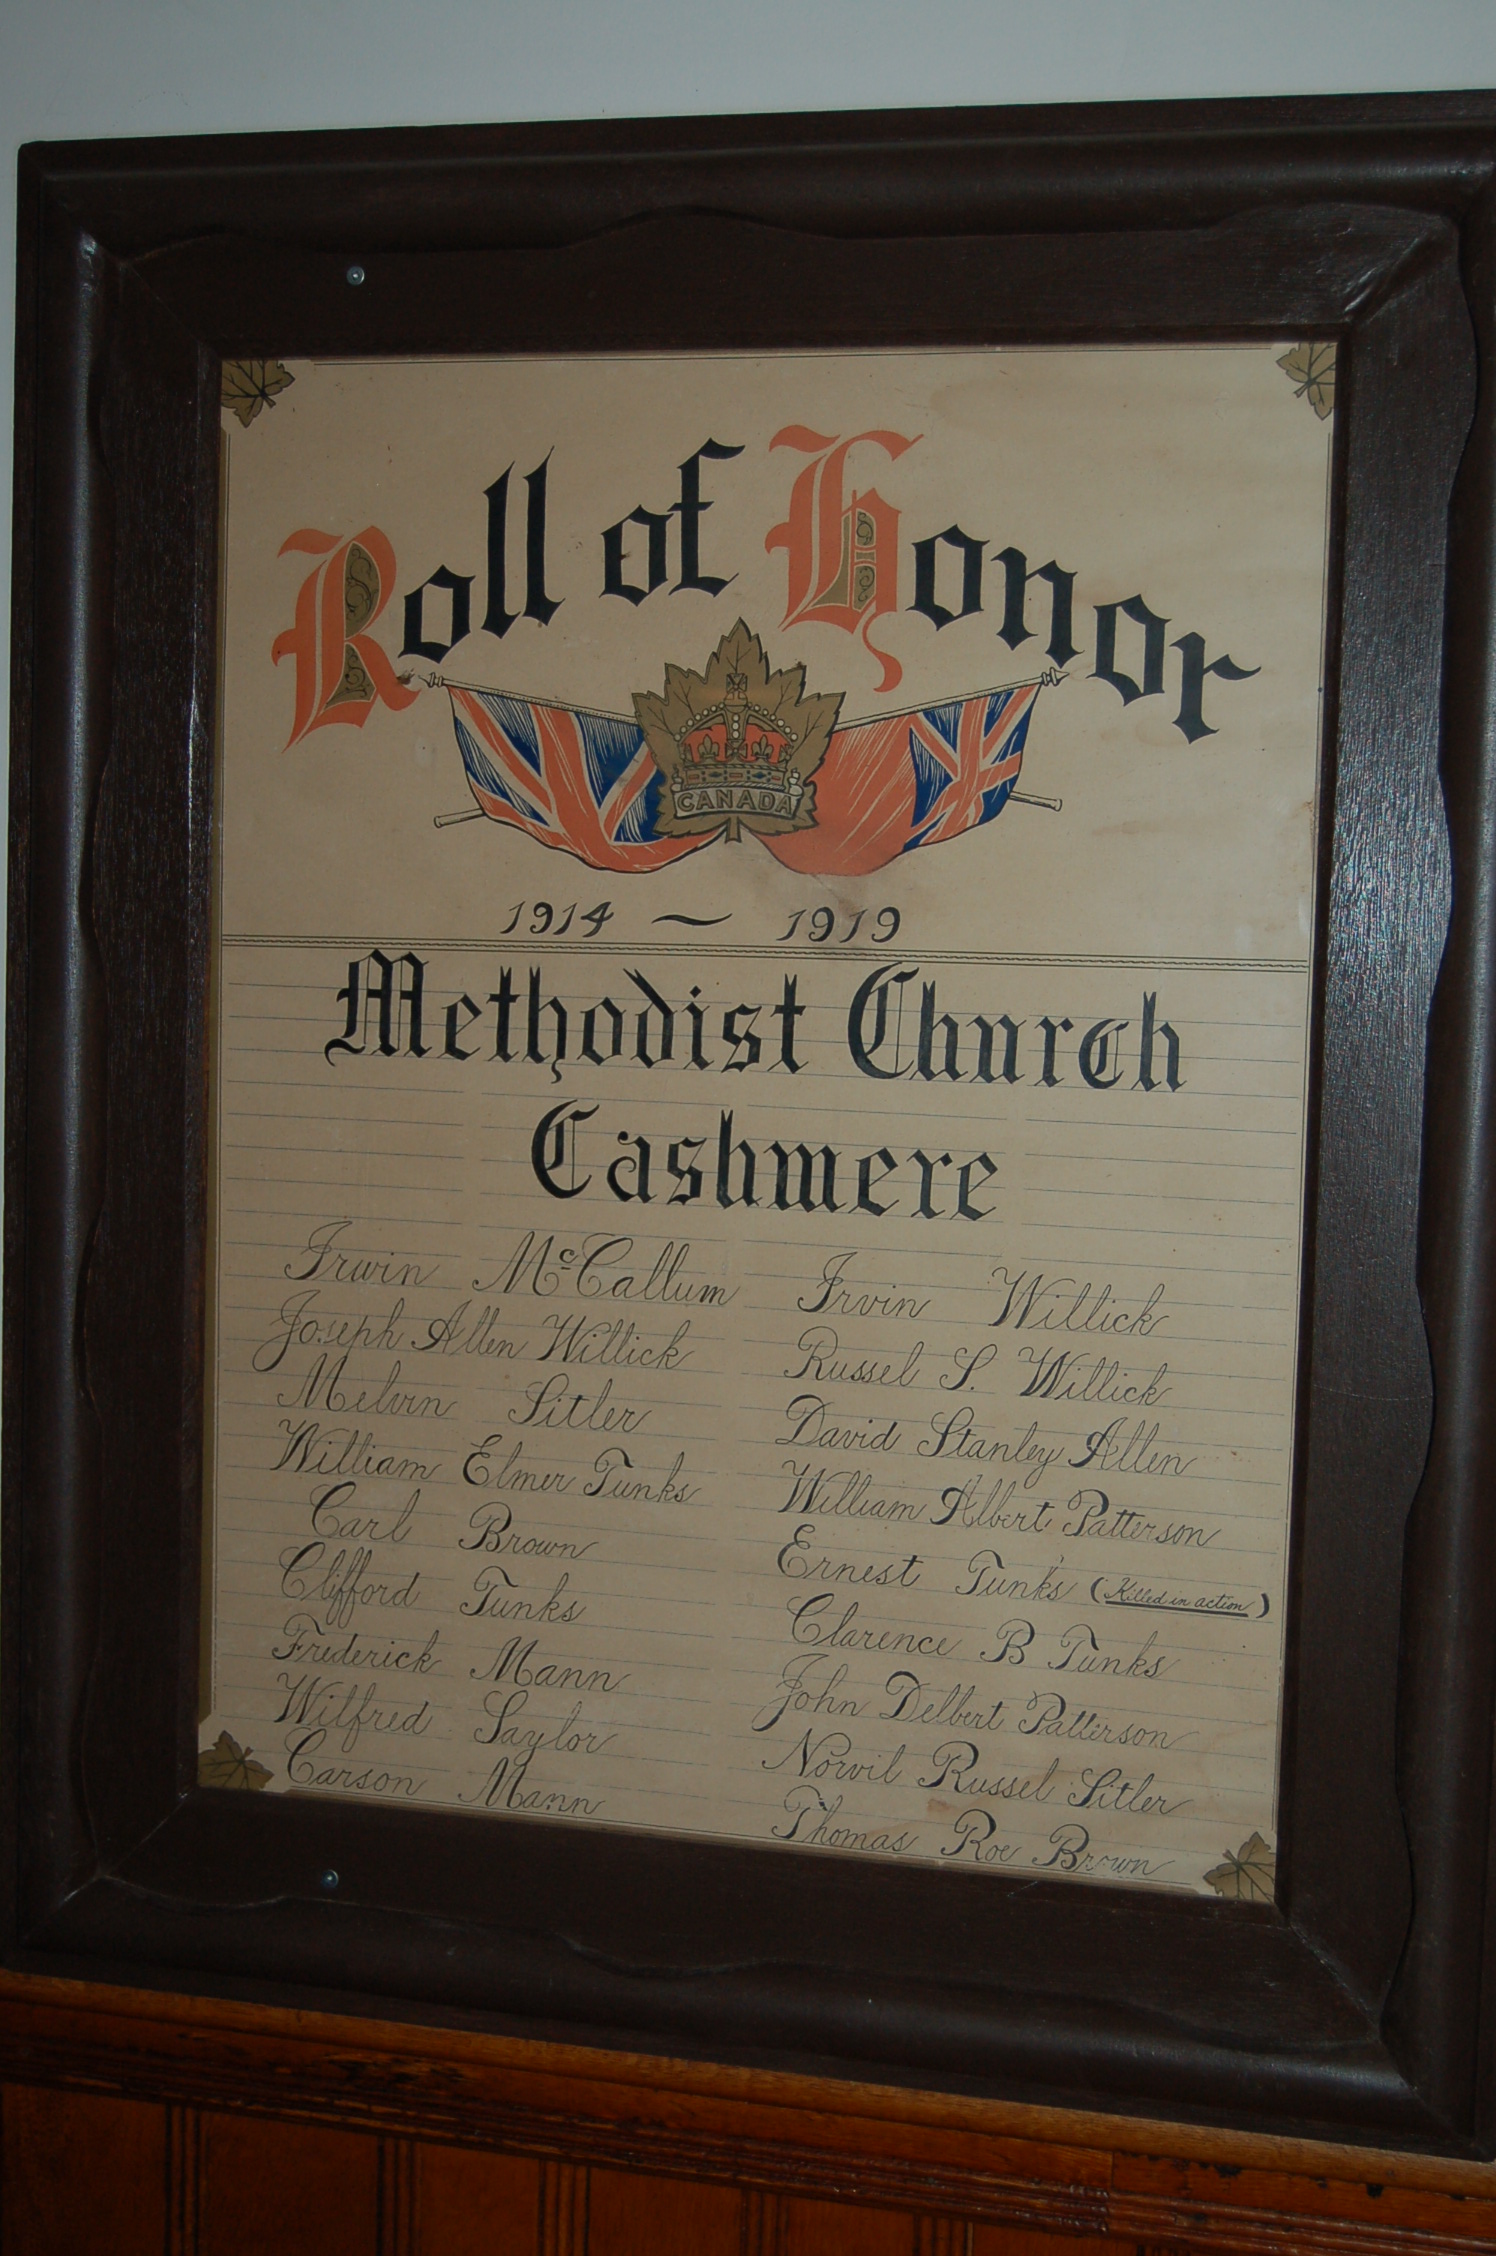 Roll of Honor
CANADA
1914 — 1919
Methodist Church
Cashmere
Irwin McCallum
Joseph Allen Willick
Melvin Sitler
William Elmer Tunks
Carl Brown
Clifford Tunks
Frederick Mann
Wilfred Saylor
Carson Mann
Irvin Willick
Russel S. Willick
David Stanley Allen
William Albert Patterson
Ernest Tunks (Killed in action)
Clarence B Tunks
John Delbert Patterson
Norvil Russel Sitler
Thomas Roe Brown